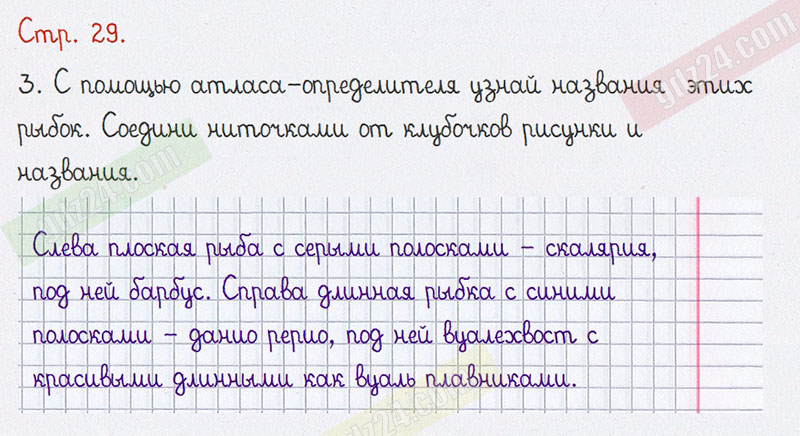 Стр. 29.
3. С помощью атласа-определителя узнай названия этих
рыбок. Соедини ниточками от клубочков рисунки и
названия.
Слева плоская рыба с серыми полосками – скалярия,
под ней барбус. Справа длинная рыбка с синими
полосками – данио рерио, под ней вуалехвост с
красивыми длинными как вуаль плавниками.
gdz24.com
gdz24.com
gdz24.com